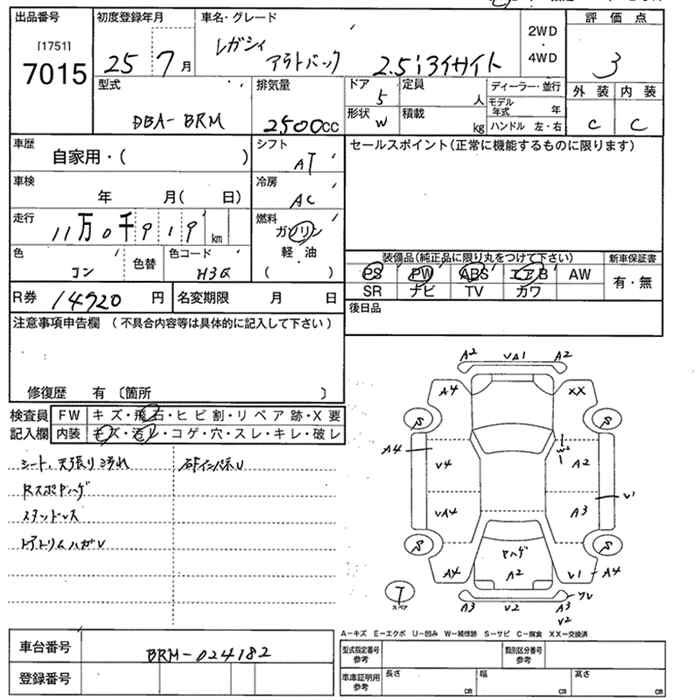 出品番号 初度登録年月 車名・グレード 2WD 評価点
[1751] レガシィ アウトバック 2.5i アイサイト ・4WD 3
7015 25 7月
型式 排気量 ドア 5 定員 人 ディーラー・並行 外装 内装
DBA-BRM 2500cc 形状 W 積載 kg モデル年式 年 C C
ハンドル 左・右
車歴 シフト セールスポイント(正常に機能するものに限ります)
自家用・( ) AT
車検 冷房
年 月( 日) AC
走行 燃料
11万0千919km ガソリン
色 色替 色コード 軽・油 装備品(純正品に限り丸をつけて下さい) 新車保証書
コン H3Q ( ) PS PW ABS エアB AW 有・無
R券 14920円 名変期限 月 日 SR ナビ TV カワ
注意事項申告欄 (不具合内容等は具体的に記入して下さい) 後日品
修復歴 有〔箇所 〕
検査員 FW キズ・飛石・ヒビ割・リペア跡・X要
記入欄 内装 キズ・汚レ・コゲ・穴・スレ・キレ・破レ
シート、天張りヨゴレ
スタッドレス
A2 VA1 A2
A4 XX
S S
A4 V4 W2 A2
V1
VA4 A3
S S
ヤハゲ
A4 A2 V1 A4
T スペア
A3 V2 A3 V2
A-キズ E-エクボ U-凹み W-補修跡 S-サビ C-腐食 XX-交換済
車台番号 BRM-024182 型式指定番号 参考 類別区分番号 参考
登録番号 車庫証明用 参考 長さ cm 幅 cm 高さ cm